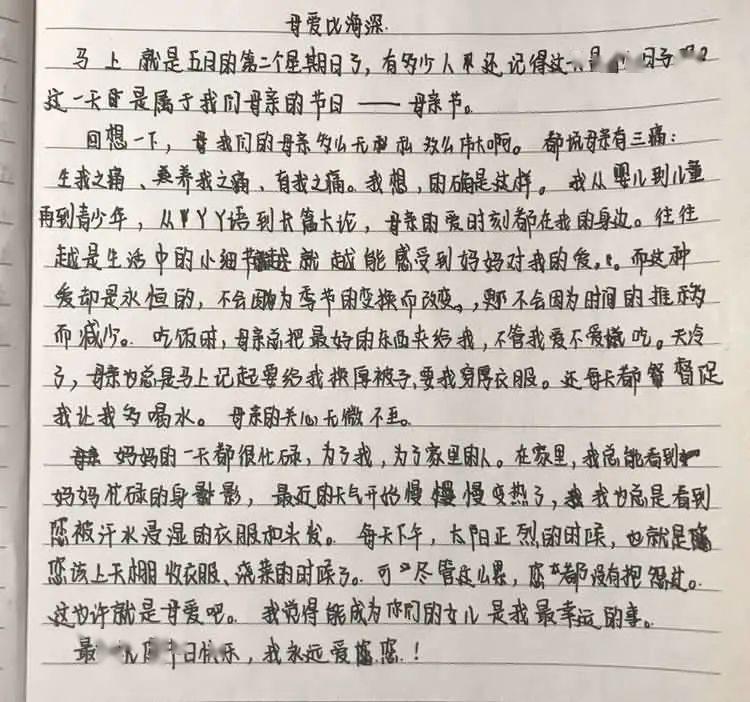 母爱比海深.
马上 就是五月的第二个星期日了,有多少人 还记得这一 日子
这一天 是属于我们母亲的节日 —— 母亲节。
回想一下, 我们的母亲多么无私 多么伟大啊。 都说母亲有三痛:
生我之痛、养我之痛、育我之痛。我想,的确是这样。 我从婴儿到儿童
再到青少年,从丫丫语到长篇大论,母亲的爱时刻都在我的身边。往往
越是生活中的小细节 就越能感受到妈妈对我的爱。而这种
爱却是永恒的,不会因为季节的变换而改变, 不会因为时间的推移
而减少。 吃饭时,母亲总把最好的东西夹给我,不管我爱不爱 吃。天冷
了,母亲也总是马上记起要给我换厚被子,要我穿厚衣服。还每天都 督促
我让我多喝水。 母亲的关心无微不至。
妈妈的一天都很忙碌,为了我,为了家里的人。在家里,我总能看到
妈妈忙碌的身 影, 最近的天气开始慢 慢变热了, 我也总是看到
您被汗水浸湿的衣服和头发。 每天下午,太阳正烈的时候,也就是
您该上天棚收衣服、浇菜的时候了。可 尽管这么累,您 都没有抱怨过。
这也许就是母爱吧。 我觉得能成为你们的女儿是我最幸运的事。
最 节日快乐,我永远爱 您!